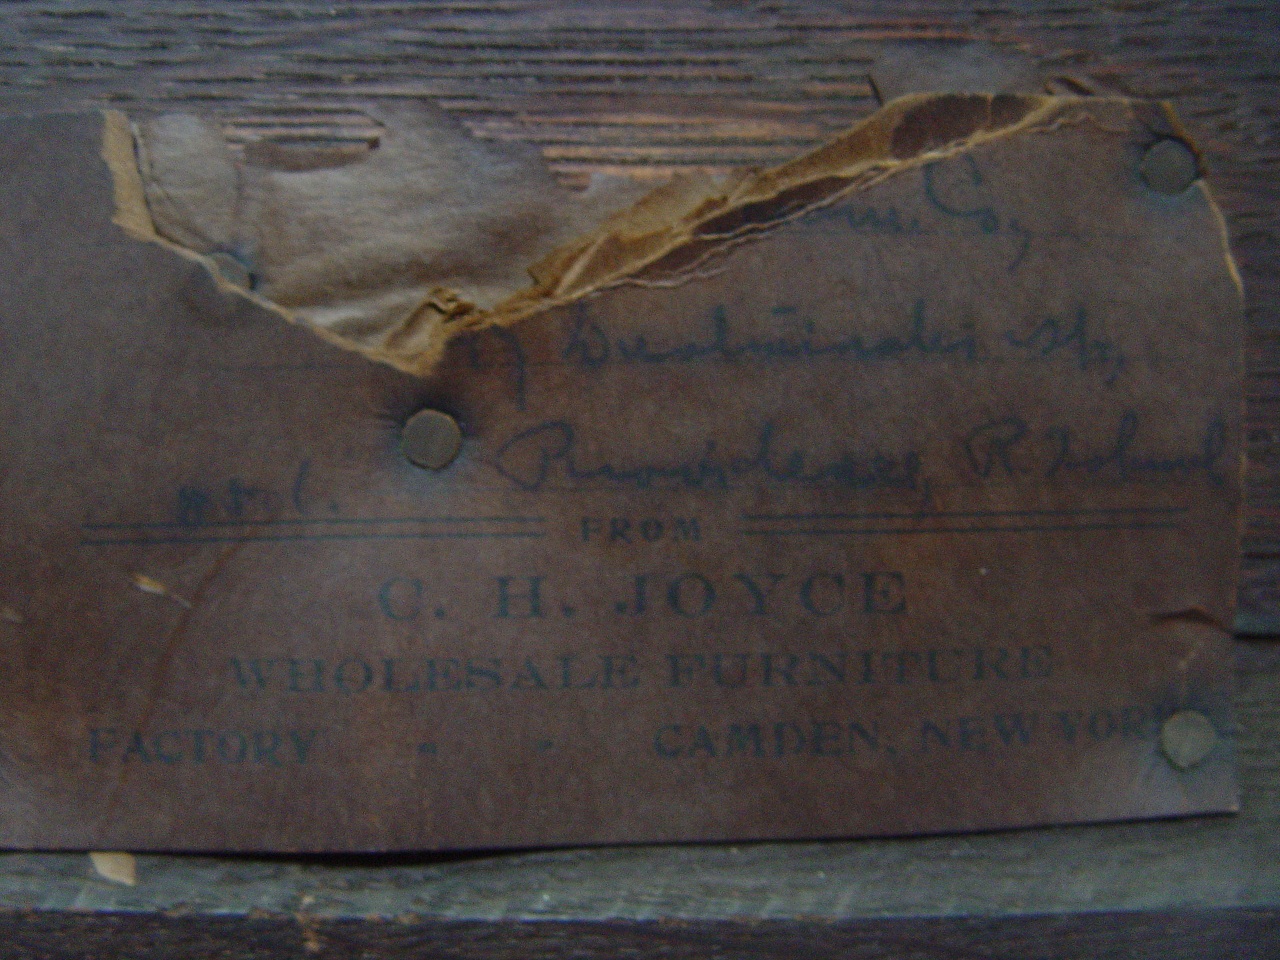 Co,
Westminster St,
Providence, R. Island
FROM
C. H. JOYCE
WHOLESALE FURNITURE
FACTORY - - CAMDEN, NEW YORK